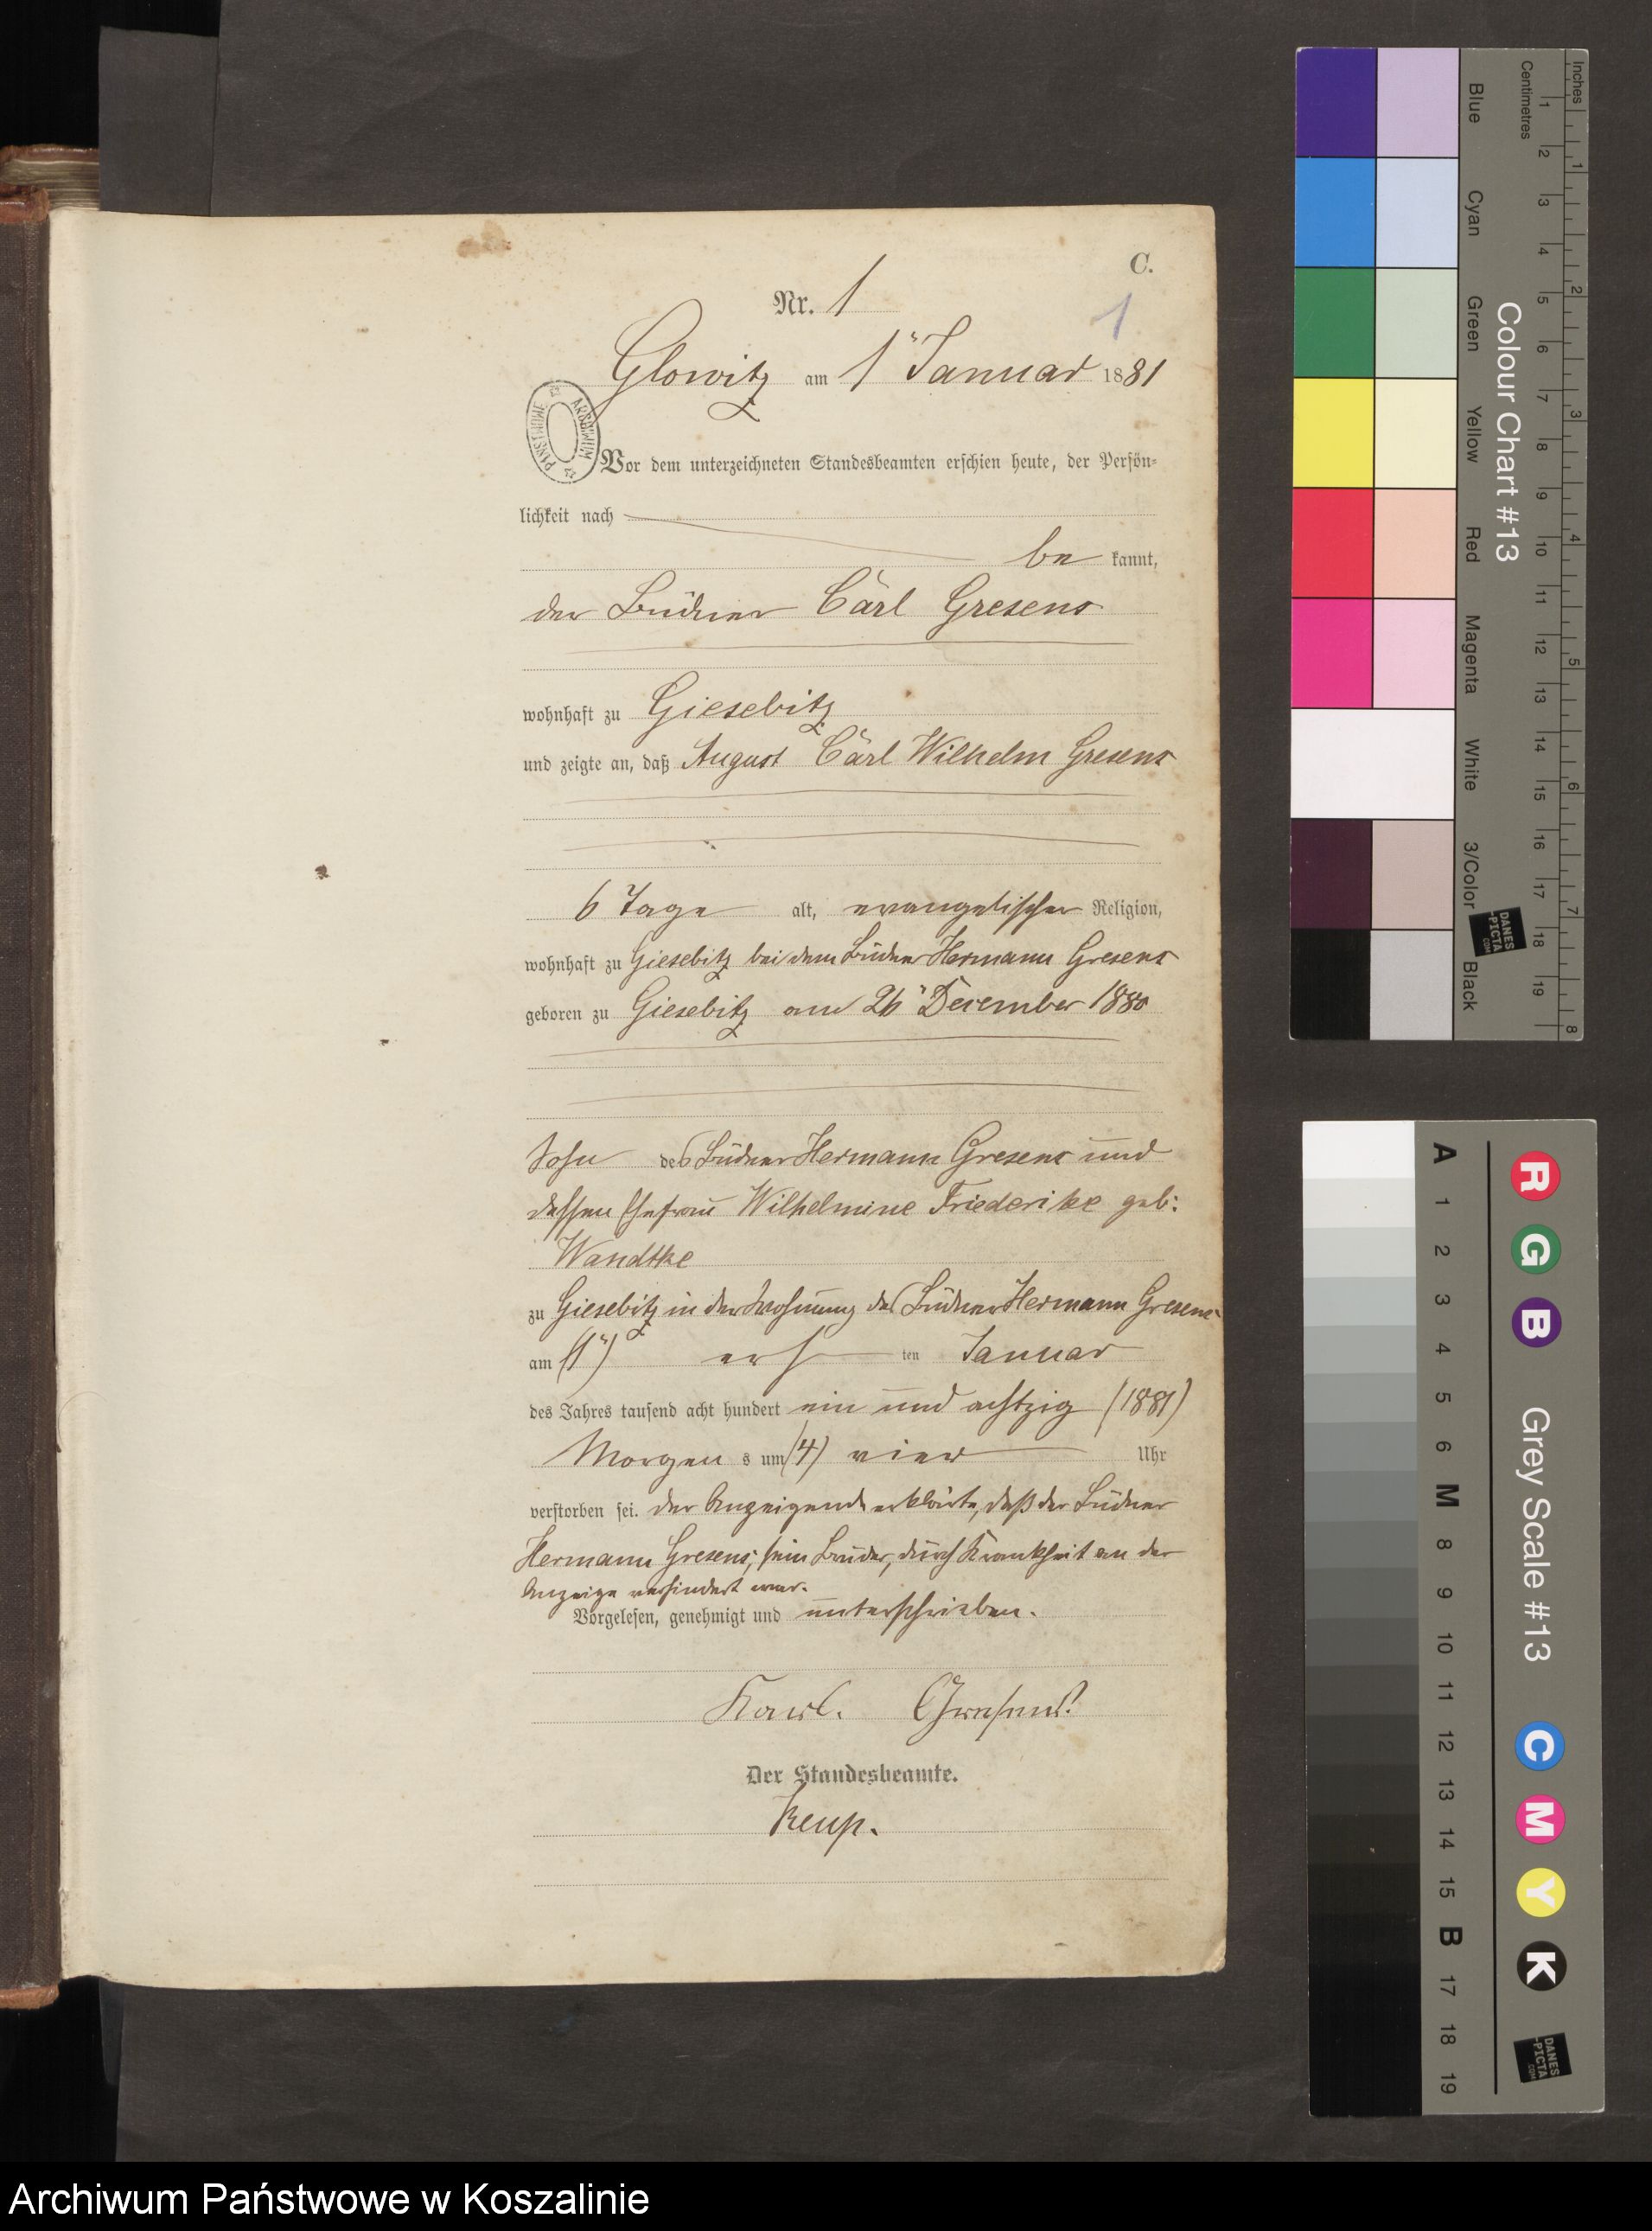 C.
Nr. 1
1
Glowitz am 1" Januar 1881
ARCHIWUM PAŃSTWOWE
Vor dem unterzeichneten Standesbeamten erschien heute, der Persön-
lichkeit nach
be kannt,
der Büdner Carl Gresens
wohnhaft zu Giesebitz
und zeigte an, daß August Carl Wilhelm Gresens
6 Tage alt, evangelischer Religion,
wohnhaft zu Giesebitz bei dem Büdner Hermann Gresens
geboren zu Giesebitz am 26" December 1880
Sohn des Büdner Hermann Gresens und
dessen Ehefrau Wilhelmine Friederike geb:
Wandtke
zu Giesebitz in der Wohnung des Büdner Hermann Gresens
am (1") erst ten Januar
des Jahres tausend acht hundert ein und achtzig (1881)
Morgen s um (4) vier Uhr
verstorben sei. der Anzeigende erklärte, daß der Büdner
Hermann Gresens, sein Bruder, durch Krankheit an der
Anzeige verhindert war.
Vorgelesen, genehmigt und unterschrieben.
Karl. Gresens.
Der Standesbeamte.
Keup.
Inches
Centimetres
1 2 3 4 5 6 7 8 9 10 11 12 13 14 15 16 17 18 19
1 2 3 4 5 6 7 8
Colour Chart #13
Blue
Cyan
Green
Yellow
Red
Magenta
White
3/Color
Black
DANES
-PICTA
.COM
Grey Scale #13
A 1 2 3 4 5 6 M 8 9 10 11 12 13 14 15 B 17 18 19
R
G
B
C
M
Y
K
DANES
-PICTA
.COM
Archiwum Państwowe w Koszalinie